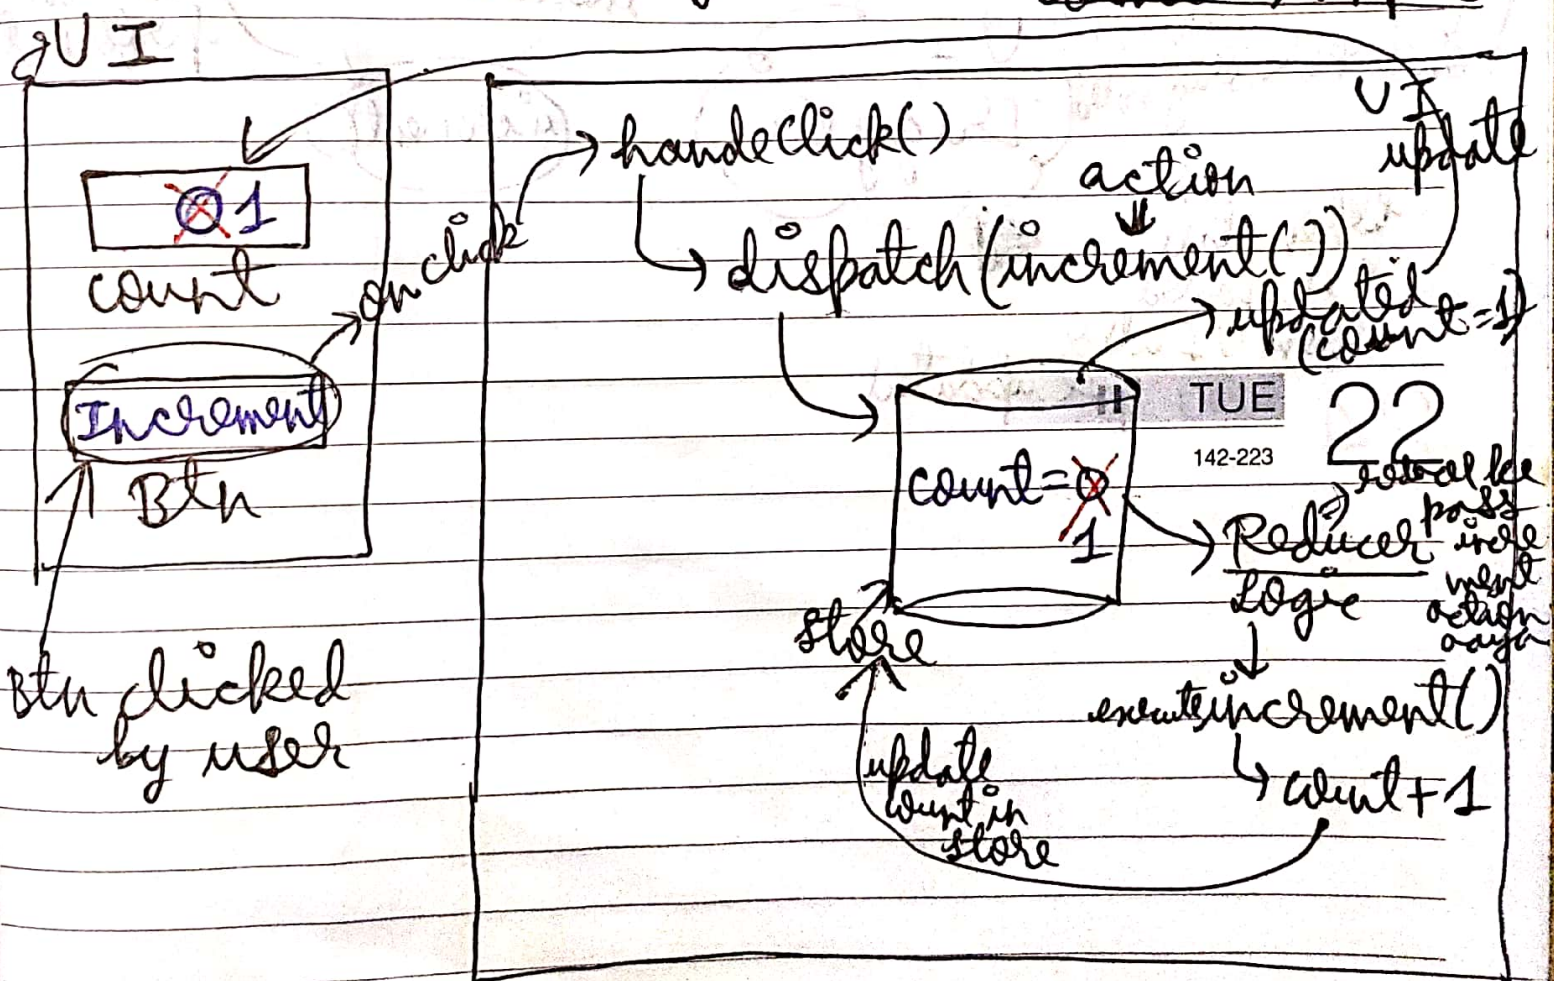 UI
1
count
Increment
Btn
Btn clicked
by user
on click
handeClick()
action
dispatch(increment())
UI
update
updated
(count=1)
TUE 22
142-223
count=0
1
store
Reducer
Logic
pass
incre
ment
action
executes increment()
count+1
update
count in
store